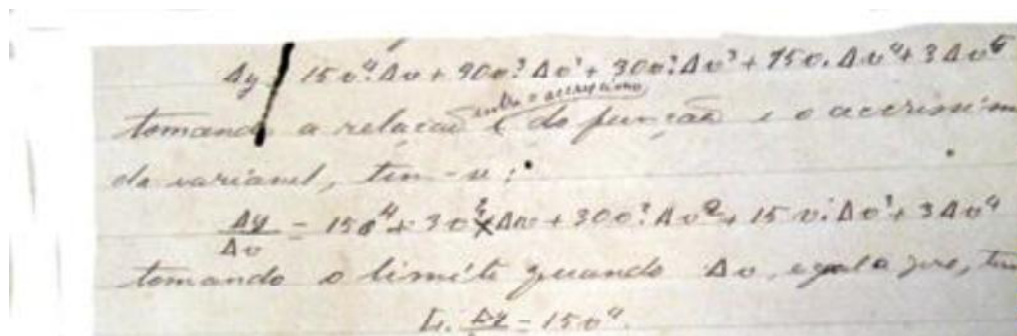 Δy = 15v⁴.Δv + 90v³.Δv² + 30v².Δv³ + 15v.Δv⁴ + 3Δv⁵
entre o accrescimo
tomando a relação da função e o accressimo
da variavel, tem-se:
Δy/Δv = 15v⁴ + 30v³ × Δv + 30v².Δv² + 15v.Δv³ + 3Δv⁴
tomando o limite quando Δv, egual a zero, tem
L. Δy/Δv = 15v⁴